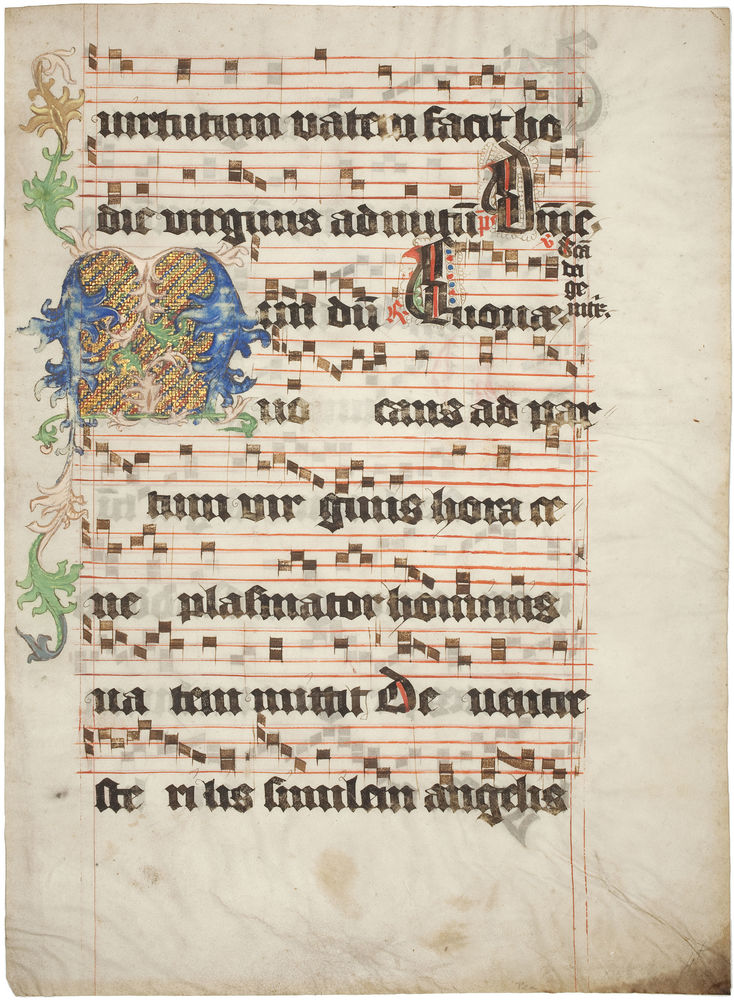 uirtutum vatem facit ho
die virginis ad nutū ps D͞ne.
V Scā dei ge nitx.
rāi dū R Euouae.
uo cans ad par
tum vir ginis hora ce
ne plasmator hominis
na tem mittit De uentre
ste ri lis similem angelis